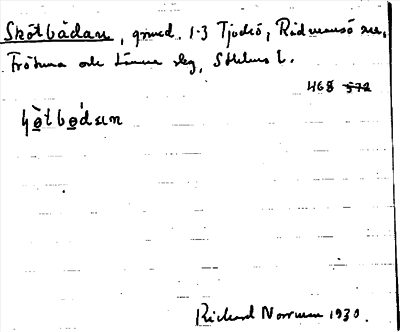 Skötbådan, grund. 1-3 Tjockö, Rådmansö sn,
Frötuna och Länna slg, Sthlms l.
468 572
ʃø̀tbø̀dan
Richard Norrman 1930.